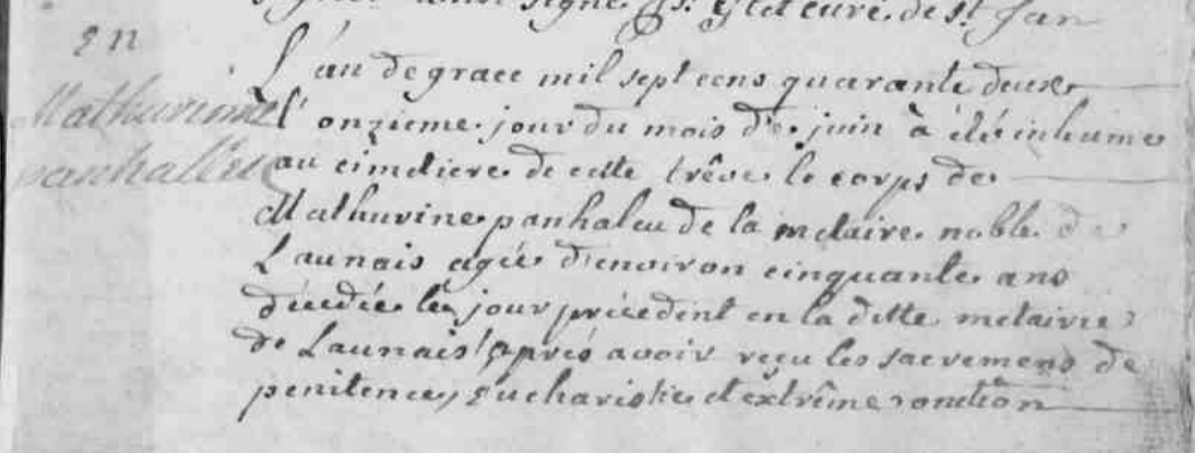 ainsi signé curé de st Jan
en
Mathurinne
panhalleu
L'an de grace mil sept cens quarante deux
l'onzieme jour du mois de juin à été inhumé
au cimetiere de cette trêve le corps de
Mathurine panhaleu de la metairie noble de
Launais agée d'environ cinquante ans
décedée le jour précedent en la ditte metairie
de Launais après avoir reçu les sacremens de
penitence, eucharistie et extrême onction